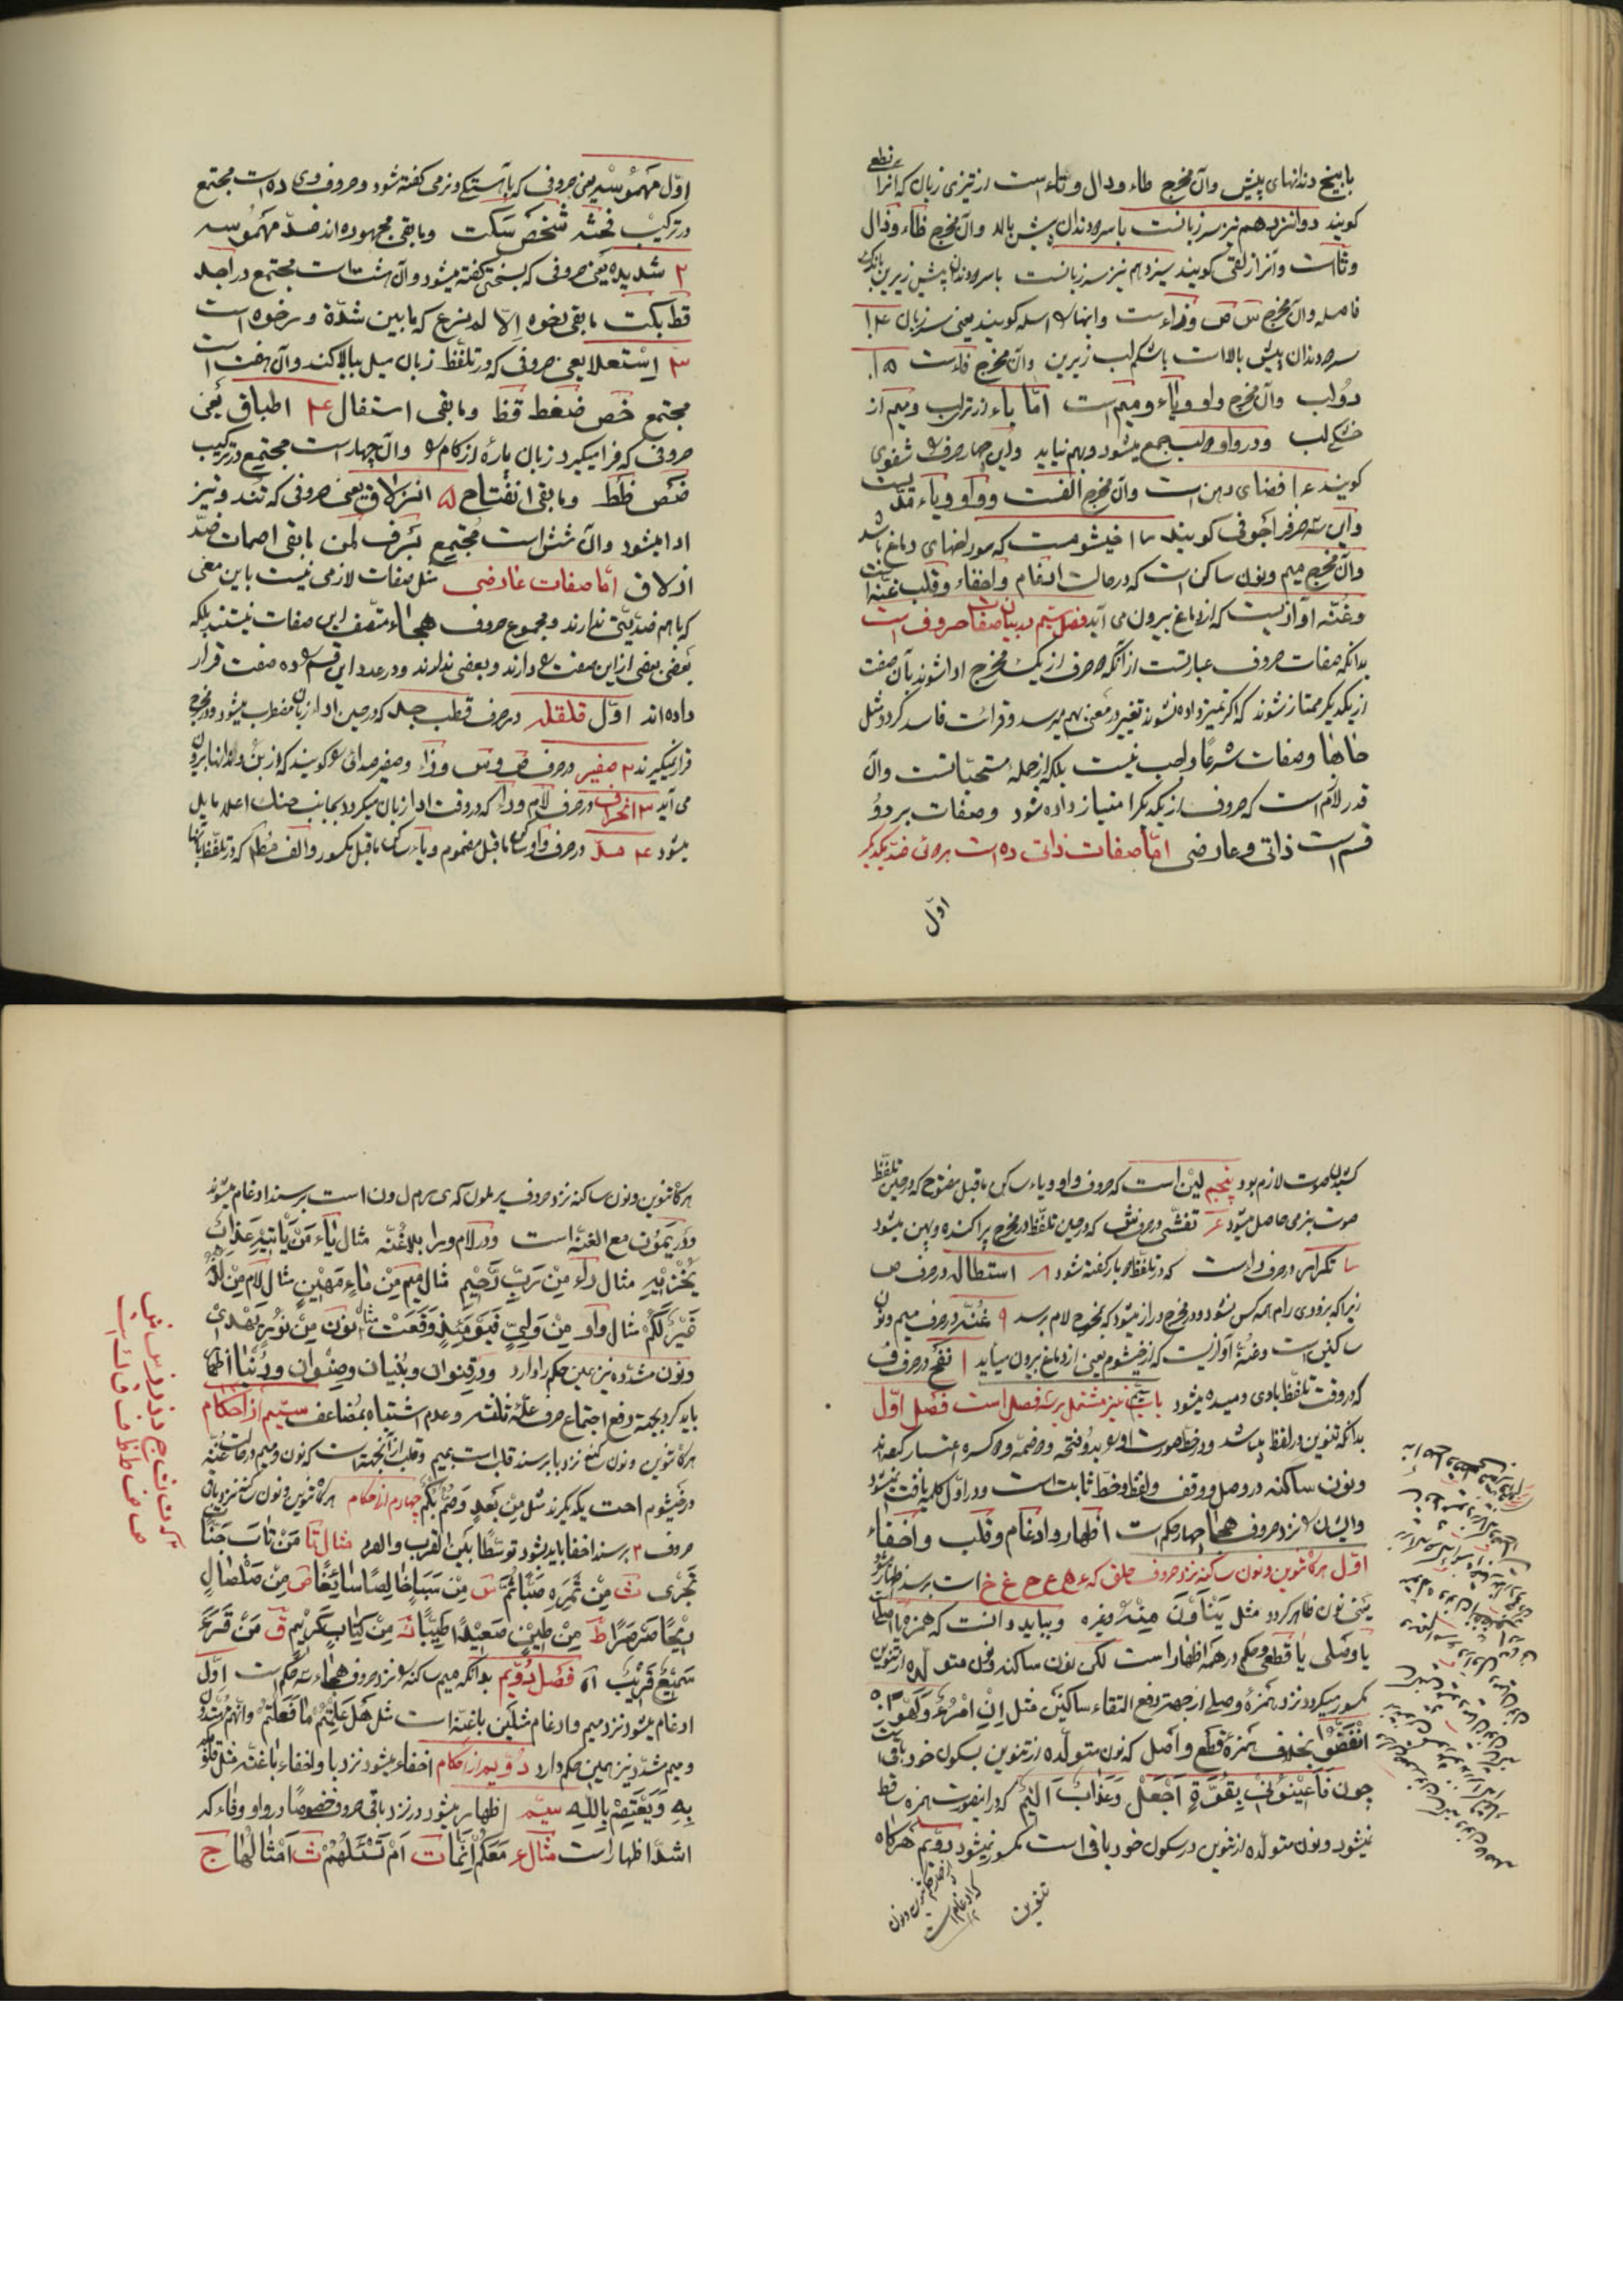 با بیخ دندانهای پیش وآن مخرج طاء ودال وتاء است از تیزی زبان که آنرا نطعی
کویند دوانزدهم نیز سر زبانست با سر دو دندان پیش بالا وآن مخرج ظاء وذال
وثاست وآنرا ذلقی کویند سیزدهم نیز سر زبانست با سر دو دندان پیش زیرین باندک
فاصله وآن مخرج س ص وزاء است وانها را اسله کویند یعنی سر زبان ۱۴
سر دو دندان پیش بالاست با شکم لب زیرین وآن مخرج فاء است ۱۵
دو لب وآن مخرج واو وباء ومیم است امّا باء از تری لب ومیم از
خشکی لب ودر واو دو لب جمع میشود وبهم نیاید واین چهار حرف را شفوی
کویند ۱۶ فضای دهن است وآن مخرج الفست وواو ویاء مدیست
واین سه حرف را جوفی کویند ۱۷ خیشومست که سوراخهای دماغ باشد
وآن مخرج میم ونون ساکن است که در حالت ادغام واخفاء وقلب غنّه است
وغنّه آوازیست که از دماغ بیرون می آید فصل سیّم در بیان صفات حروف است
بدانکه صفات حروف عبارتست از آنکه دو حرف از یک مخرج ادا شوند بآن صفت
از یکدیکر ممتاز شوند که اکر تمیز داده نشوند تغییر در معنی بهم میرسد وقرائت فاسد کردد مثل
حا وها وصفات شرعًا واجب نیست بلکه از جمله مستحبّاتست وآن
قدر لازم است که حروف از یکدیکر امتیاز داده شود وصفات بر دوُ
قسم است ذاتی وعارضی امّا صفات ذاتی ده است هر یک ضدّ یکدیکر
اوّل
اوّل مَهموُسْه یعنی حروفی که بآهستکی ونرمی کفته شود وحروف وی ده است مجتمع
در ترکیب فحثه شخص سَکت وما بقی مجهوره اند ضدّ مهموُسه
۲ شدیده یعنی حروفی که بسختی کفته میشود وآن هشت است مجتمع در اجد
قط بکت ما بقی رخوه اِلّا لم نرع که ما بین شدّة ورخوه است
۳ اِستعلا یعنی حروفی که در تلفّظ زبان میل ببالا کند وآن هفت است
مجتمع خص ضغط قظ وما بقی استفال ۴ اطباق یعنی
حروفی که فرا میکیرد زبان پارهٔ از کام را وآن چهار است مجتمع در ترکیب
ضص ظط وما بقی انفتاح ۵ انزلاق یعنی حروفی که تند وتیز
ادا میشود وآن شش است مُجتمع بَرف لمن ما بقی اصمات ضدّ
اذلاق امّا صفات عارضی مثل صفات لازمی نیست باین معنی
که با هم ضدّیّتی ندارند ومجموع حروف هجاء متّصف باین صفات نیستند بلکه
بَعضی بعضی از این صفت را دارند وبعضی ندارند ودر عدد این قسم را ده صفت قرار
داده اند اوّل قلقله در حرف قطب جد که در حین ادا زبان مضطرب میشود ودر مخرج
قرار نمیکیرند ۲ صفیر در حرف ص وس وزا وصفیر صدائی را کویند که از بن دندانها بیرون
می آید ۳ انحراف در حرف لام ورا که در وقت ادا زبان میکردد بجانب حنک اعلا مایل
میشود ۴ مدّ در حرف واو ساکن ما قبل مضموم ویاء ساکن ما قبل مکسور والف مطلقا که در تلفّظ بآنها
کشیدن صوت لازم بود پنجم لین است که حروف واو ویاء ساکن ما قبل مفتوح که در حین تلفّظ
صوت بنرمی حاصل میشود ۶ تفشّی در حرف ش که در حین تلفّظ در مخرج پراکنده وپهن میشود
۷ تکرار در حرف را است که در تلفّظ دو بار کفته شود ۸ استطاله در حرف ض
زیرا که بزودی رام همه کس نشود ودر مخرج دراز میشود که بمخرج لام برسد ۹ غنّه در حرف میم ونون
ساکنین است وغنّه آوازیست که از خیشوم یعنی از دماغ بیرون میاید ۱۰ نفخ در حرف ف
که در وقت تلفّظ بادی دمیده میشود باب سیّم نیز مشتمل بر سه فصل است فصل اوّل
بدانکه تنوین در لفظ میباشد ودر خط صورت او را بدو فتحه ودو ضمّه ودو کسره اعتبار کرده اند
ونون ساکنه در وصل ووقف ولفظ وخطّ ثابت است ودر اوّل کلمه یافت نمیشود
وایشان را نزد حروف هجا چهار حکم است اظهار وادغام وقلب واخفاء
اوّل هر کاه تنوین ونون ساکنه نزد حروف حلق که ء ه ع ح غ خ است برسد اظهار میشود
یعنی نون ظاهر کردد مثل یَنْاَوْنَ مِنْهُ وغیره وبباید دانست که همزه یا اصلی
یا وصلی یا قطعی وحکم در همه اظهار است لکن نون ساکنه ونون متولّده از تنوین
مکسور میکردد نزد همزهٔ وصلی از جهة رفع التقاء ساکنین مثل اِنِ امْرُءٌ وَلَهْوًا
انْفَضُّوْا بخلاف همزهٔ قطع واصل که نون متولّده از تنوین بسکون خود باقیست
چون فَاَعِیْنُوْنِیْ بِقُوَّةٍ اَجْعَلْ وَعَذابٌ اَلیْمٌ که در اینصورت همزه قط
نمیشود ونون متولّده از تنوین در سکون خود باقی است مکسور نمیشود دوّیم هر کاه
تنوین
هر کاه تنوین ونون ساکنه نزد حروف یرملون که ی ر م ل و ن است برسند ادغام میشوند
ودر یَمُوْن مع الغنّه است ودر لام ورا بلا غُنّه مثال یاء مَنْ یَاْتِیْهِ عَذابٌ
یُخْزِیْهِ مثال راء مِنْ رَبٍّ رَحْیمٍ مثال میم مِنْ ماءٍ مَهیْنٍ مثال لام مِنْ لَدُنْ
خَیْرٌ لَکُمْ مثال واو مِنْ وَلیٍّ فَیَوْمَئِذٍ وَقَعَتْ مثال نون مِنْ نوُرٍ یَهْدی
ونون مشدّده نیز همین حکم را دارد ودر قِنوان وبُنیان وصِنْوان ودُنْیا اظهار
باید کرد بجهة رفع اجتماع حروف علّهٔ ثلثه وعدم اشتباه بمُضاعف سیّم از احکام
هر کاه تنوین ونون ساکنه نزد با برسند قلب است بمیم وقلب از آنجهة است که نون ومیم در حالت غنّه
در خیشوم احت یکدیکرند مثل مِنْ بَعْدِ وَصُمٌّ بُکْمٌ چهارم از احکام هر کاه تنوین ونون ساکنه نزد باقی
حروف برسند اخفا باید بشود توسّطًا بَیْن القرب والبعد مثال تا مَنْ تابَ جَنّاتٍ
تَجْری ث مِنْ ثَمَرِه سَبَبًا ثُمَّ س مِنْ سَبَأٍ خالِصًا سائِغًا ص مِنْ صَلْصالٍ
رِیْحًا صَرْصَرًا ط مِنْ طِیْنٍ صَعِیْدًا طَیِّبًا ک مِنْ کِتابٍ کَریْمٍ ق مَنْ قَرَءَ
سَمِیْعٌ قَرِیْبٌ اه فصل دُوّیم بدانکه میم ساکنه را نزد حروف هجاء سه حکم است اوّل
ادغام میشود نزد میم وادغام مثلین با غنّه است مثل هَلْ عَلِمْتُمْ ما فَعَلْتُمْ
ومیم مشدّد نیز همین حکم دارد دوّیم از احکام اخفاء میشود نزد با واخفاء با غنّه مثل
بِهِ وَیَعْتَصِمْ بِاللهِ سیّم اظهار میشود در نزد باقی حروف خصوصًا در واو وفاء که
اشدّ اظهار است مثال ء مَعَکُمْ اِنَّما ت اَمْ تَسْئَلُهُمْ ث اَمْثالُها ج